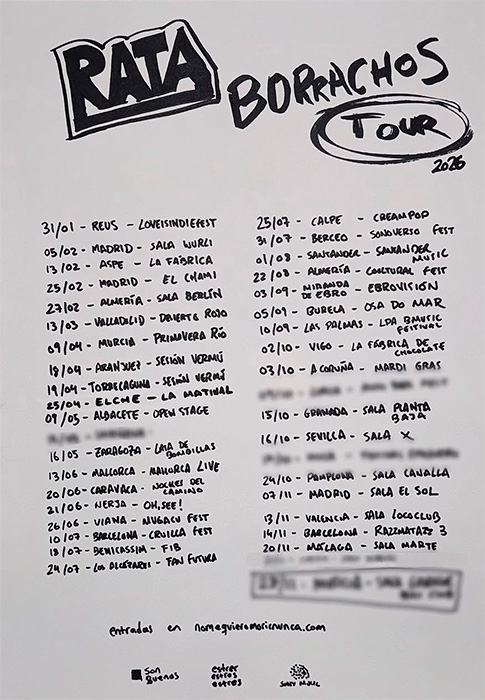 RATA
BORRACHOS
TOUR
2026
31/01 - REUS - LOVEISINDIEFEST
05/02 - MADRID - SALA WURLI
13/02 - ASPE - LA FÁBRICA
25/02 - MADRID - EL CHAMI
27/02 - ALMERÍA - SALA BERLÍN
13/03 - VALLADILID - DEBIERTO ROJO
09/04 - MURCIA - PRIMAVERA RÍO
18/04 - ARANJUEZ - SESIÓN VERMÚ
19/04 - TORRELAGUNA - SESIÓN VERMÚ
25/04 - ELCHE - LA MATINAL
09/05 - ALBACETE - OPEN STAGE
16/05 - ZARAGOZA - CASA DE
BOMBILLAS
13/06 - MALLORCA - MALLORCA LIVE
20/06 - CARAVACA - NOCHES DEL
CAMINO
21/06 - NERJA - OH, SEE!
26/06 - VIANA - MUGACU FEST
10/07 - BARCELONA - CRUILLA FEST
18/07 - BENICASSIM - FIB
24/07 - LOS ALCÁZARES - FAN FUTURA
25/07 - CALPE - CREAMPOP
31/07 - BERCEO - SONOVERSO FEST
01/08 - SANTANDER - SANTANDER
MUSIC
22/08 - ALMERÍA - COOLTURAL FEST
03/09 - MIRANDA
DE EBRO - EBROVISIÓN
05/09 - BURELA - OSA DO MAR
10/09 - LAS PALMAS - LPA BMUSIC
FESTIVAL
02/10 - VIGO - LA FÁBRICA DE
CHOCOLATE
03/10 - A CORUÑA - MARDI GRAS
15/10 - GRANADA - SALA PLANTA
BAJA
16/10 - SEVILLA - SALA X
24/10 - PAMPLONA - SALA CANALLA
07/11 - MADRID - SALA EL SOL
13/11 - VALENCIA - SALA LOCOCLUB
14/11 - BARCELONA - RAZZMATAZZ 3
20/11 - MÁLAGA - SALA MARTE
entradas en nomequieromorirnunca.com
Son
Buenos
estrer
estros
estres